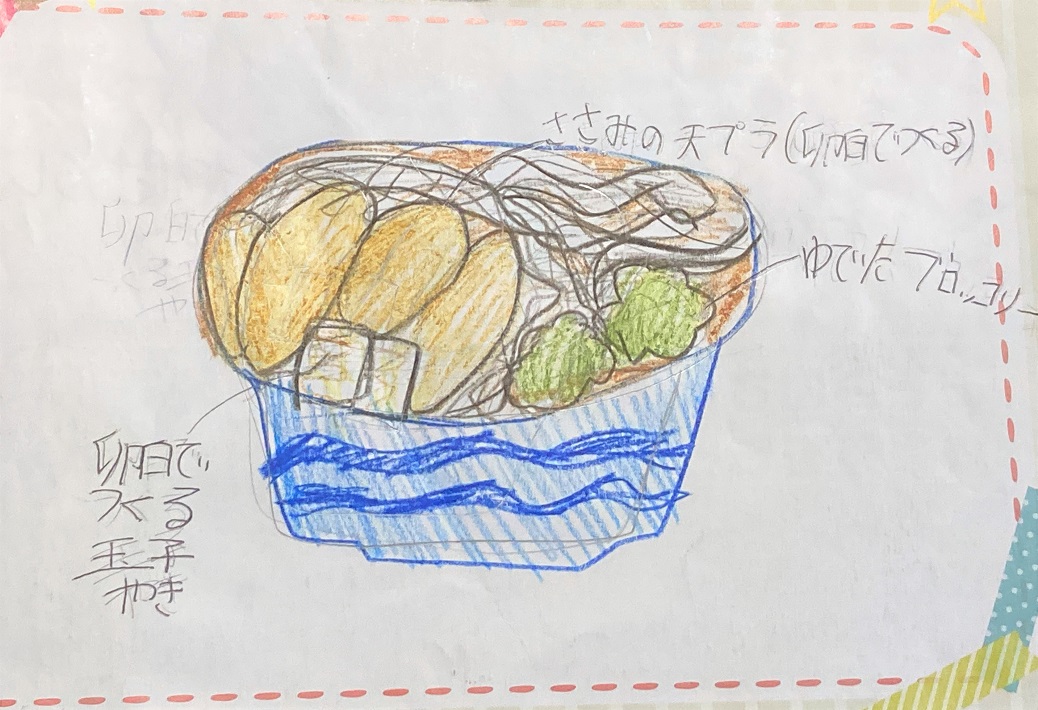 ささみの天プラ(卵白でつくる)
ゆでたブロッコリー
卵白で
つくる
玉子
やき